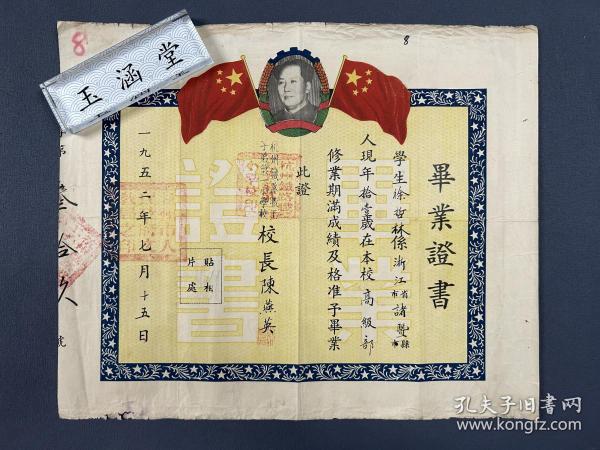 畢業證書
學生徐哲林係浙江省市諸暨縣市
人現年拾壹歲在本校高級部
修業期滿成績及格准予畢業
此證
校長陳燕英
貼相
片處
一九五二年七月十五日
叁拾玖號
畢業
證書
8
8
玉涵堂
孔夫子旧书网
www.kongfz.com